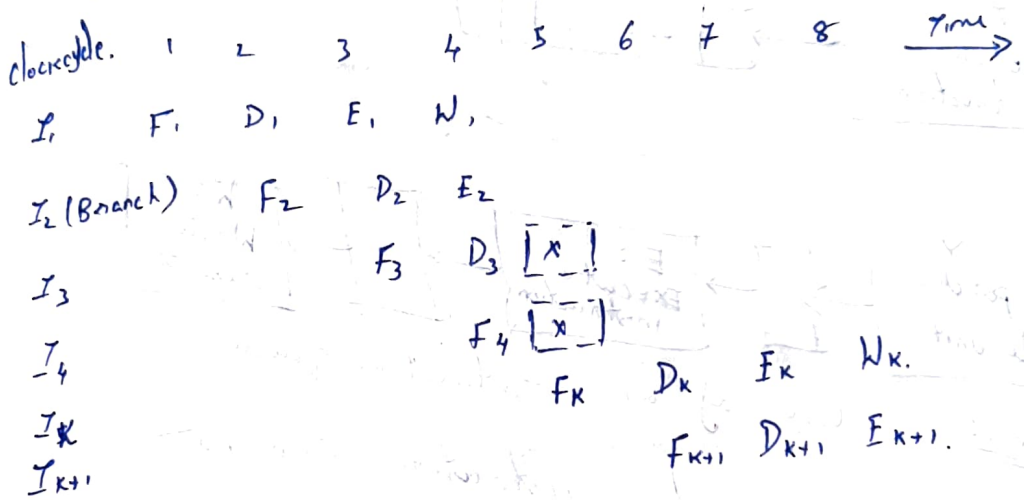 clockcycle. 1 2 3 4 5 6 7 8 Time
I1 F1 D1 E1 W1
I2 (Branch) F2 D2 E2
I3 F3 D3 x
I4 F4 x
IK FK DK EK WK.
IK+1 FK+1 DK+1 EK+1.